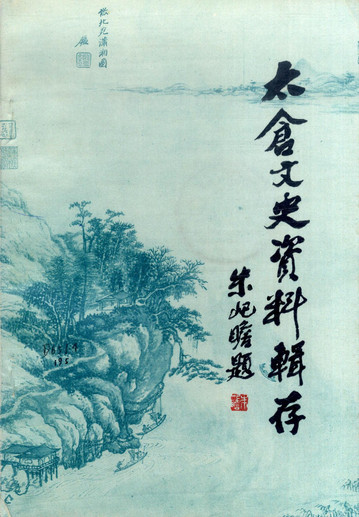 太倉文史資料輯存
朱屺瞻题